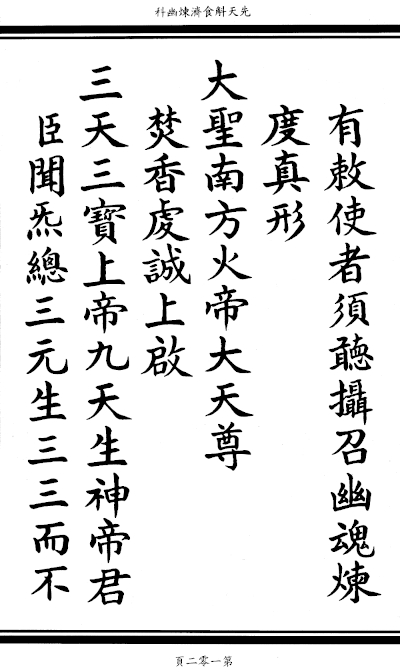 先天斛食濟煉幽科
有敕使者須聽攝召幽魂煉
度真形
大聖南方火帝大天尊
焚香虔誠上啟
三天三寶上帝九天生神帝君
臣聞炁總三元生三三而不
第一零二頁